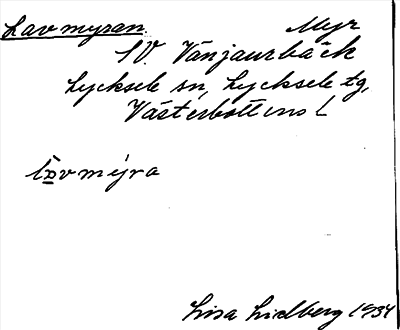 Lavmyran. Myr
SV. Vänjaurbäck
Lycksele sn, Lycksele tg,
Västerbottens L
lavmýra
Lisa Lidberg 1934